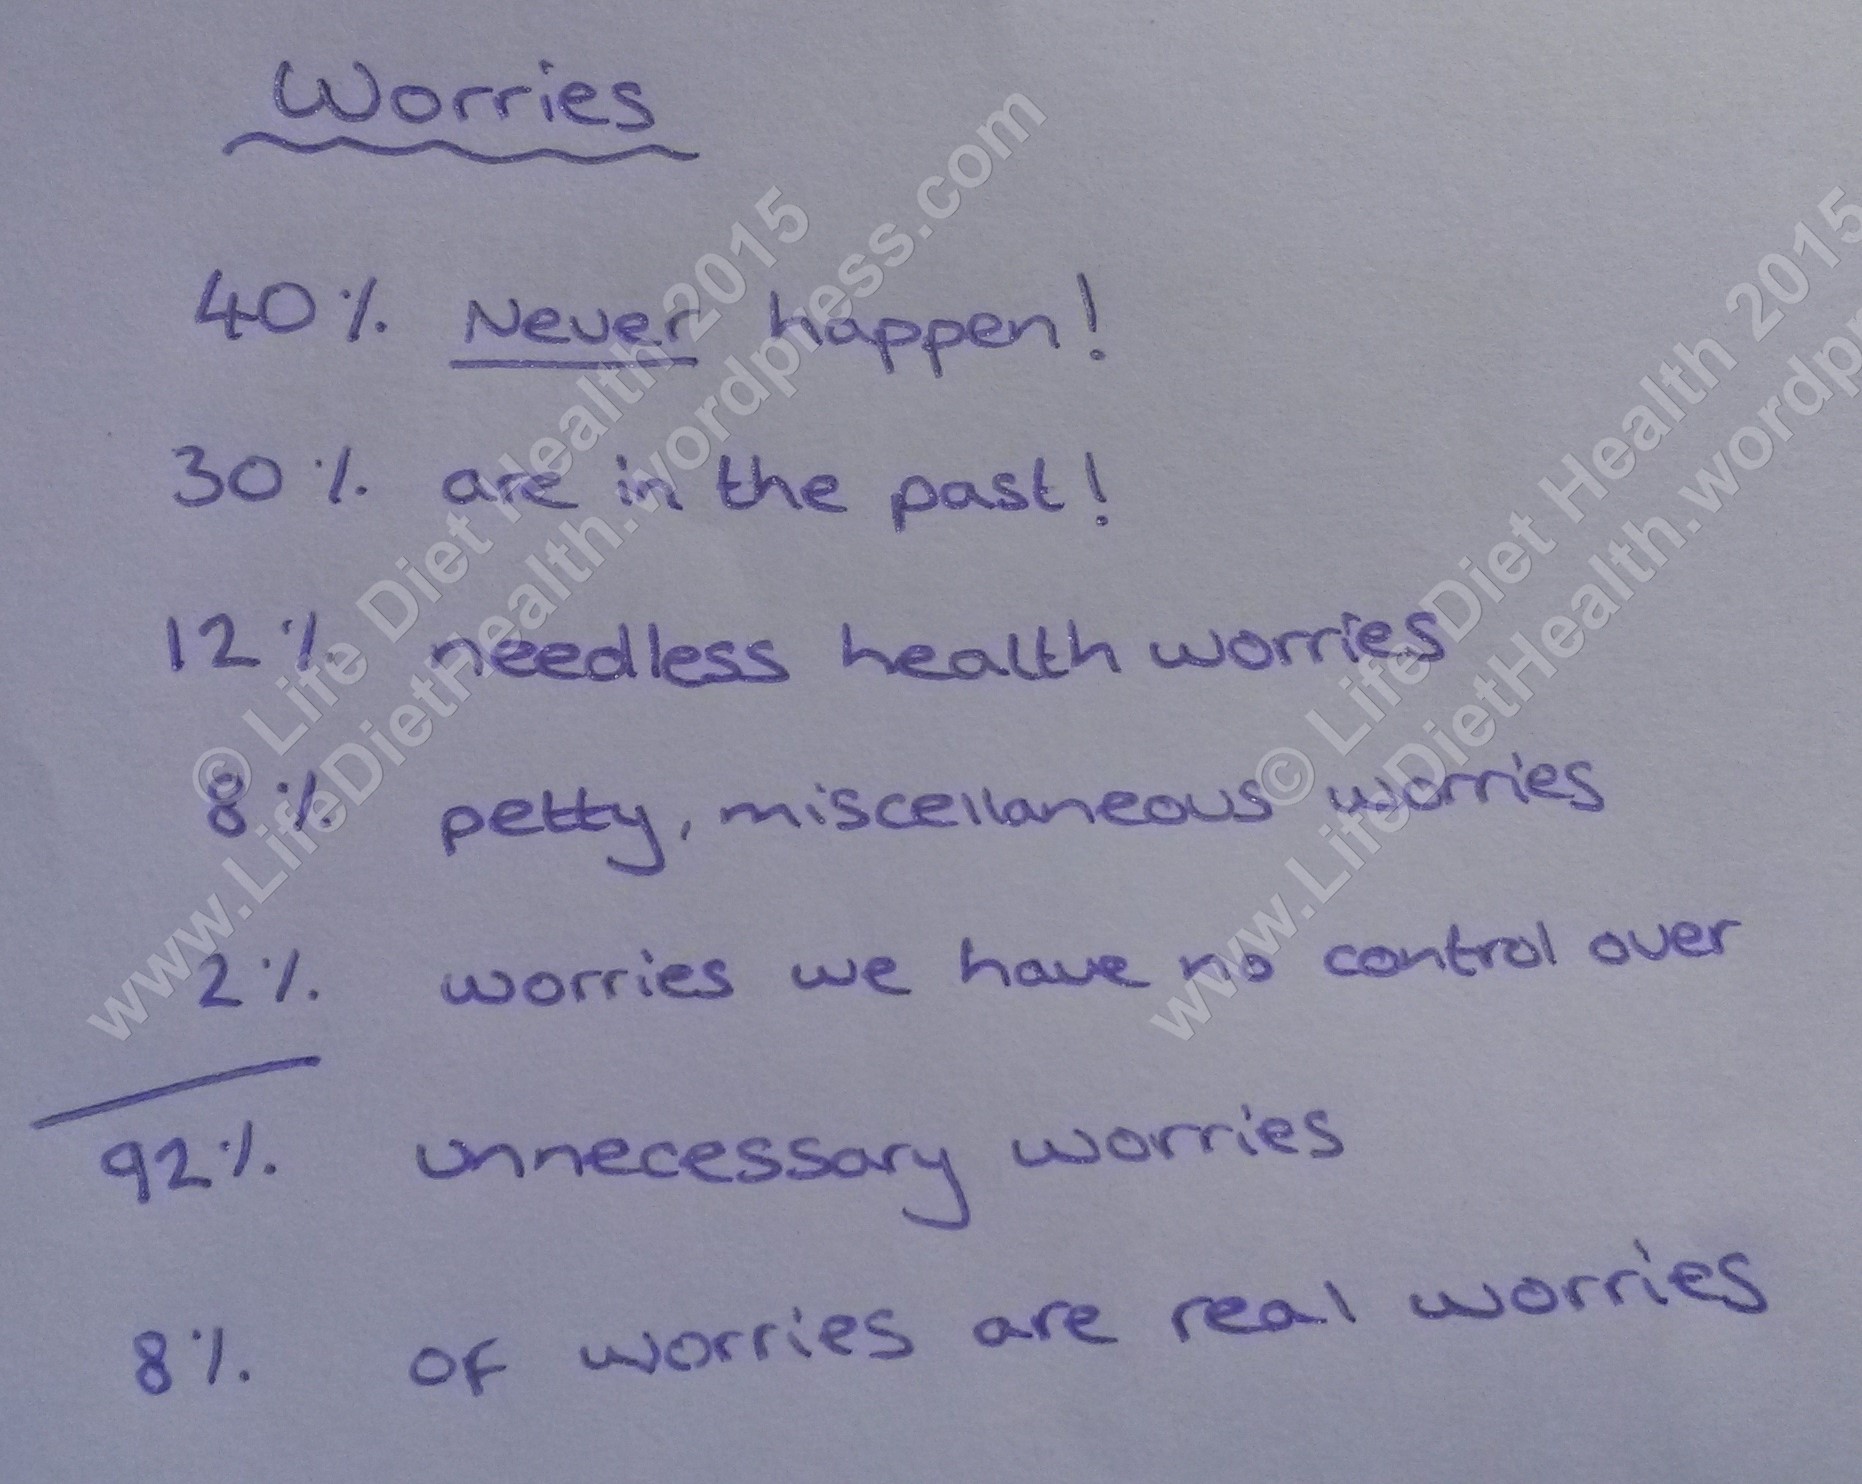 Worries
40% Never happen!
30% are in the past!
12% needless health worries
8% petty, miscellaneous worries
2% worries we have no control over
92% unnecessary worries
8% of worries are real worries
© Life Diet Health 2015
www.LifeDietHealth.wordpress.com
© Life Diet Health 2015
www.LifeDietHealth.wordpr